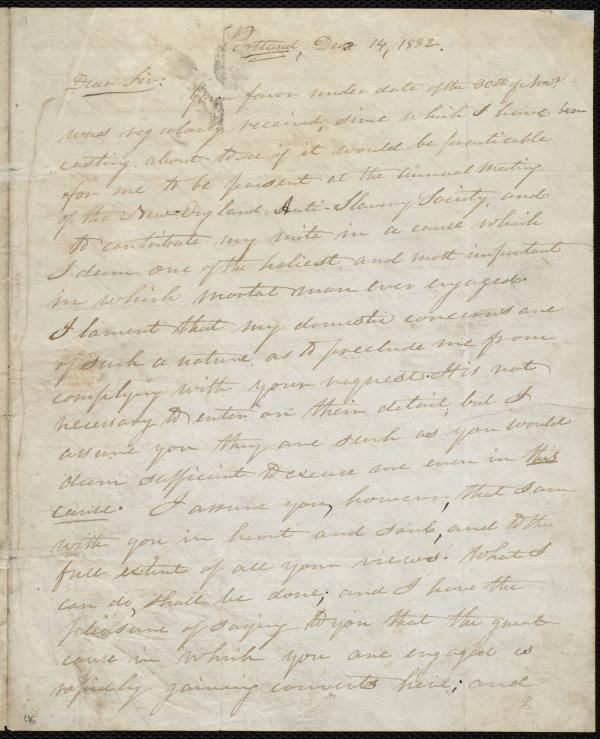 Portland, Decr 14, 1832.
Dear Sir:
Your favor under date of the 30th of Novr
was regularly received, since which I have been
casting about to see if it would be practicable
for me to be present at the annual meeting
of the New-England Anti-Slavery Society, and
to contribute my mite in a cause which
I deem one of the holiest, and most important
in which mortal man ever engaged.
I lament that my domestic concerns are
of such a nature as to preclude me from
complying with your request. It is not
necessary to enter on them detail, but I
assure you they are such as you would
deem sufficient to excuse me even in this
cause. I assure you, however, that I am
with you in heart and soul, and to the
full extent of all your views. What I
can do, shall be done; and I have the
pleasure of saying to you that the great
cause in which you are engaged is
rapidly gaining converts here; and